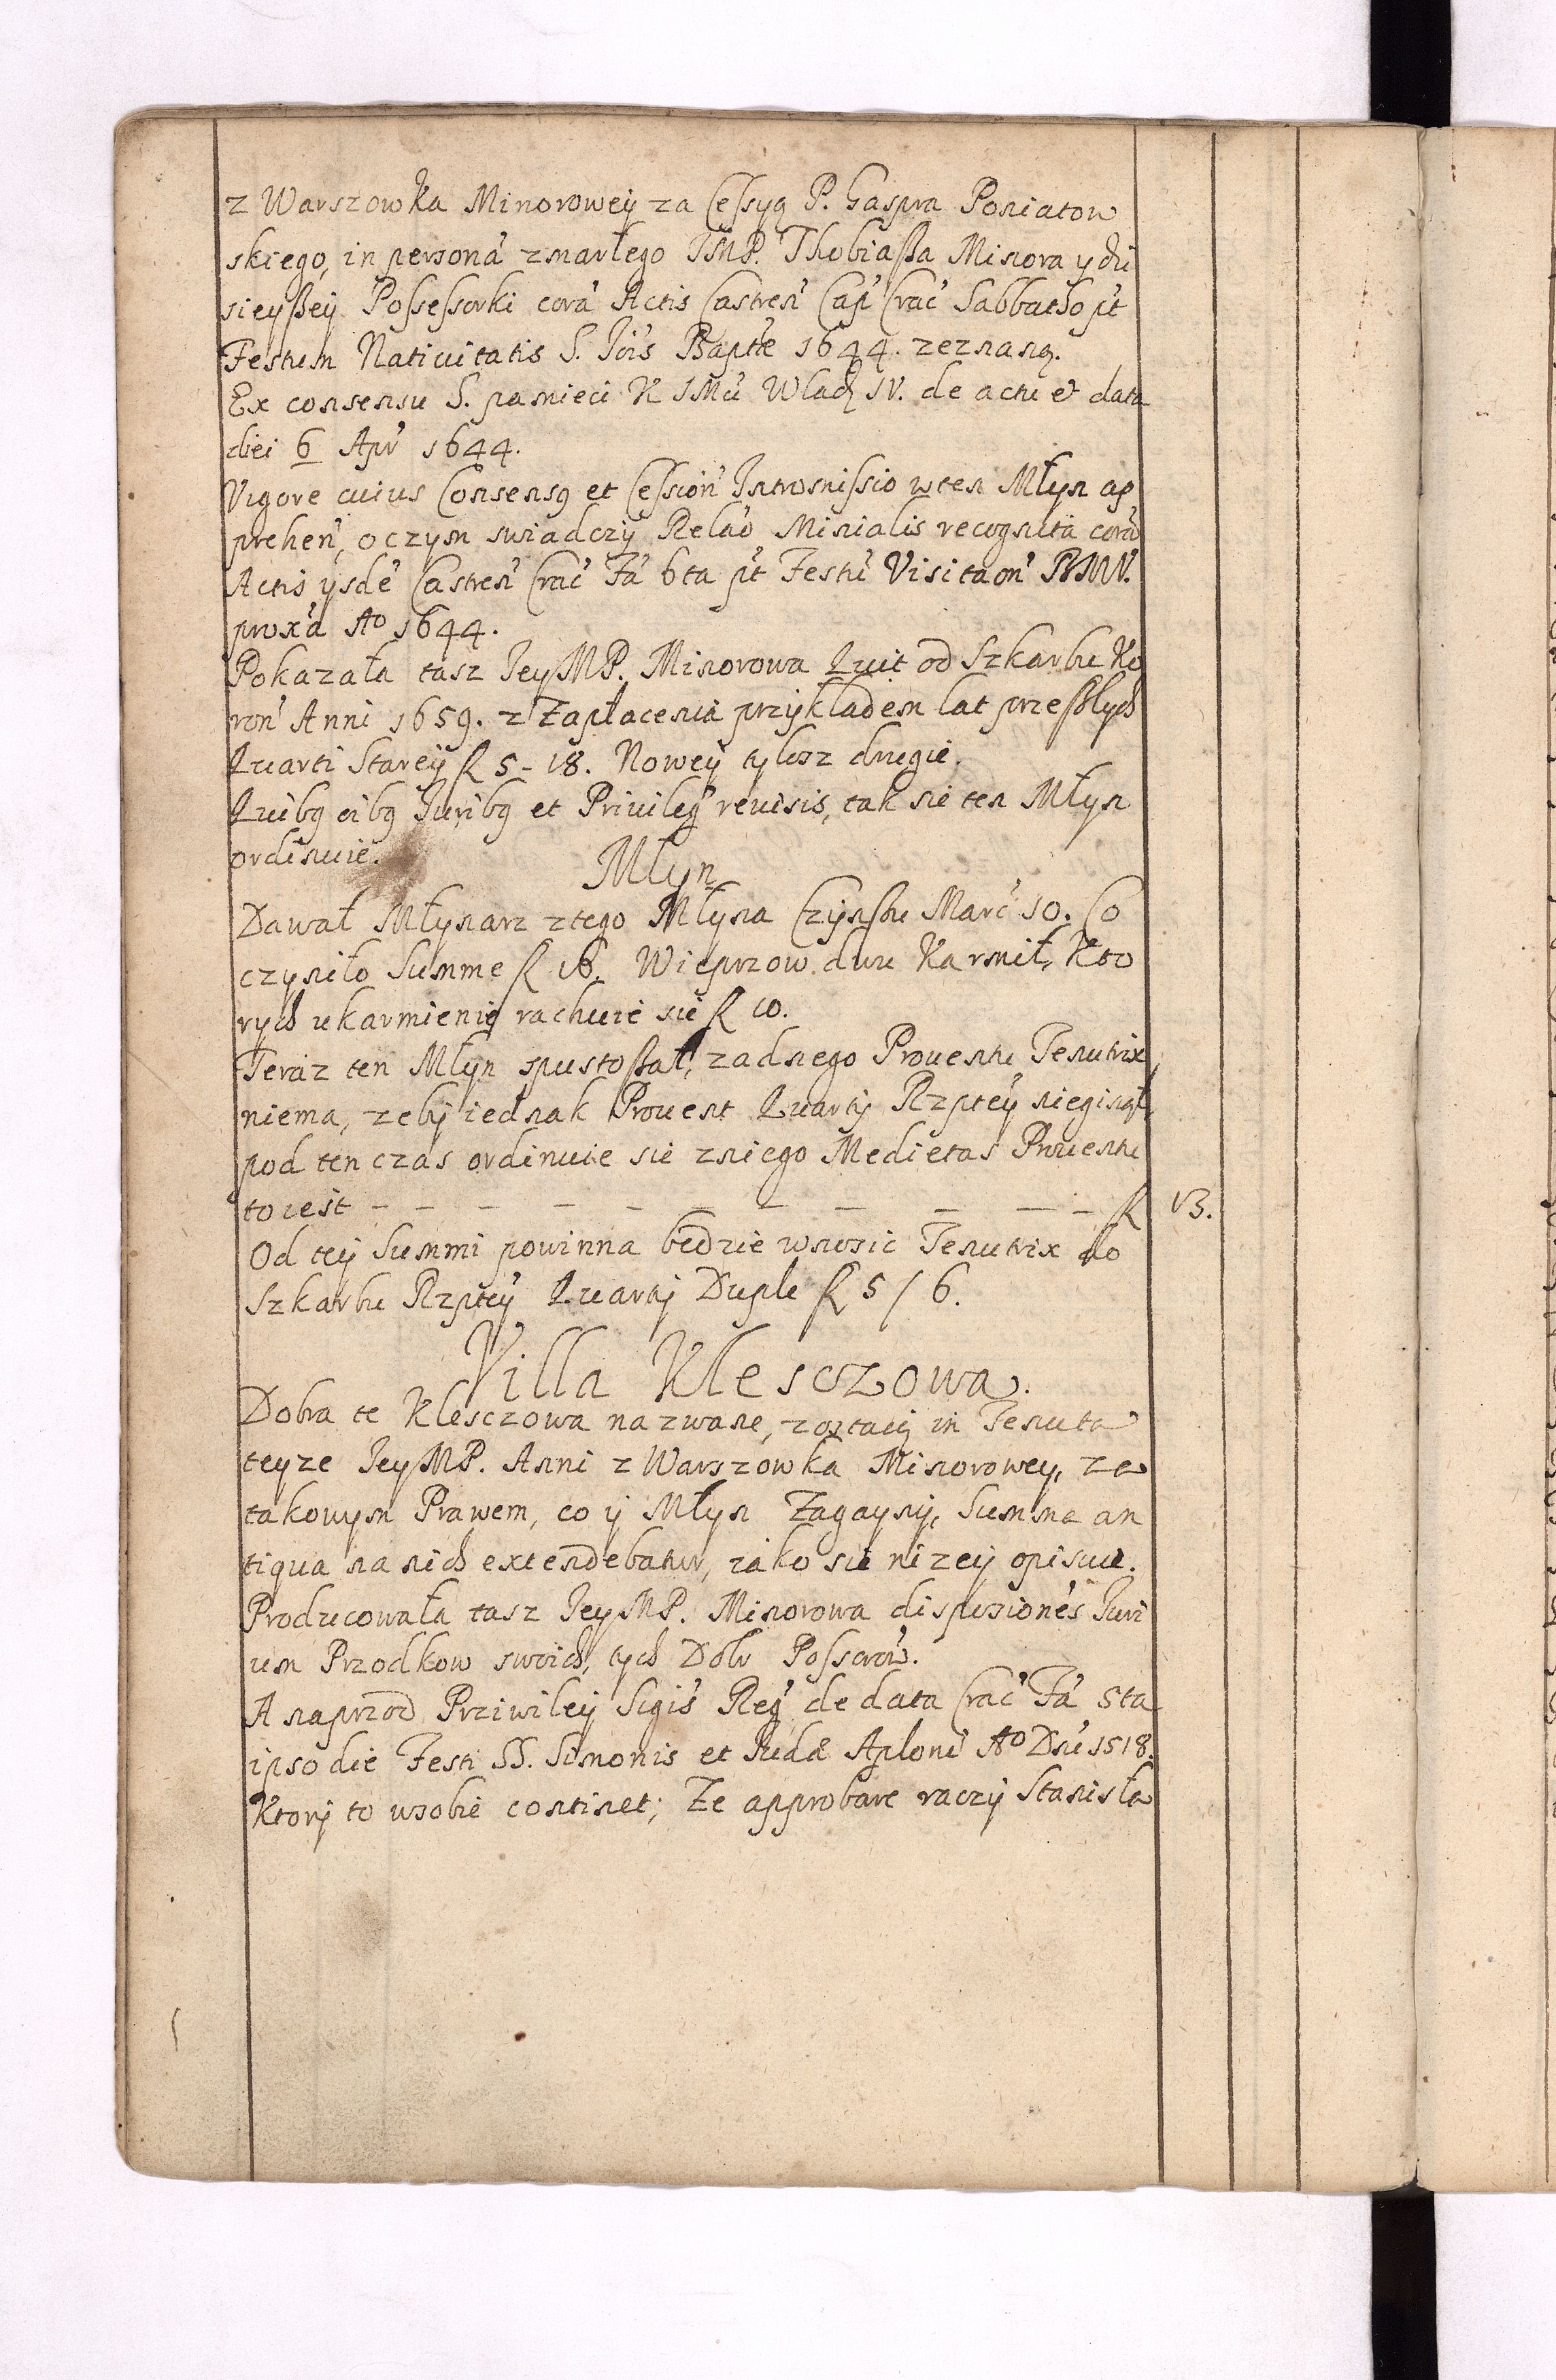 z Warszowka Minorowey za Cessyą P. Gaspra Poniatow
skiego, in persona' zmarłego JMP. Thobiaßa Minora y dzi
sieyßey Possessorki cora' Actis Castren' Cap' Crac' Sabbatho p't
Festum Natiuitatis S. Jo'is Bap'tæ 1644. zeznaną.
Ex consensu S. pamieci K JMci Wlad IV. de actu et data
diei 6 Apr' 1644.
Vigore cuius Consensq et Cession' Intromissio w ten Młyn ap
prehen', o czym swiadczy Relao' Minialis recognita cora'
Actis ysde' Castren' Crac' Fa' 6ta p't Festu' Visitaon' BVMV.
prox'a Ao 1644.
Pokazała tasz JeyMP. Minorowa Quit od Szkarbu Ko
ron' Anni 1659. z Zapłacenia przykładem lat przeßłych
Quarti Starey fl 5-18. Nowey tylosz drugie.
Quibq oibq Juribq et Priuileg' reuisis, tak sie ten Młyn
ordinuie.
Młyn
Dawał Młynarz z tego Młyna Czynßu Marc' 10. Co
czyniło Summe fl 16. Wieprzow dwu Karmił, Kto
rych ukarmienie rachuie sie fl 10.
Teraz ten Młyn spustoßał, zadnego Prouentu Tenutrix
niema, zeby iednak Prouent Quarty Rzptey nieginął,
pod ten czas ordinuie sie z niego Medietas Prouentu
to iest - - - - - - - - - - fl 13.
Od tey Summi powinna będzie wnosic Tenutrix do
Szkarbu Rzptey Quarty Duple fl 5/6.
Villa Klesczowa.
Dobra te Klesczowa nazwane, zostaią in Tenuta
teyze JeyMP. Anni z Warszowka Minorowey, za
takowym Prawem, co y Młyn Zagayny, Summa an
tiqua na nich extendebatur, iako sie nizey opisuie.
Producowała tasz JeyMP. Minorowa dispersiones Juri
um Przodkow swoich, tych Dobr Possorow'.
A naprzod Priwiley Sigis' Reg' de data Crac' Fa' 5ta
ipso die Festi SS. Simonis et Judæ Aploru' Ao Dni 1518.
Ktory to w sobie continet; Ze approbare raczy Stanisła